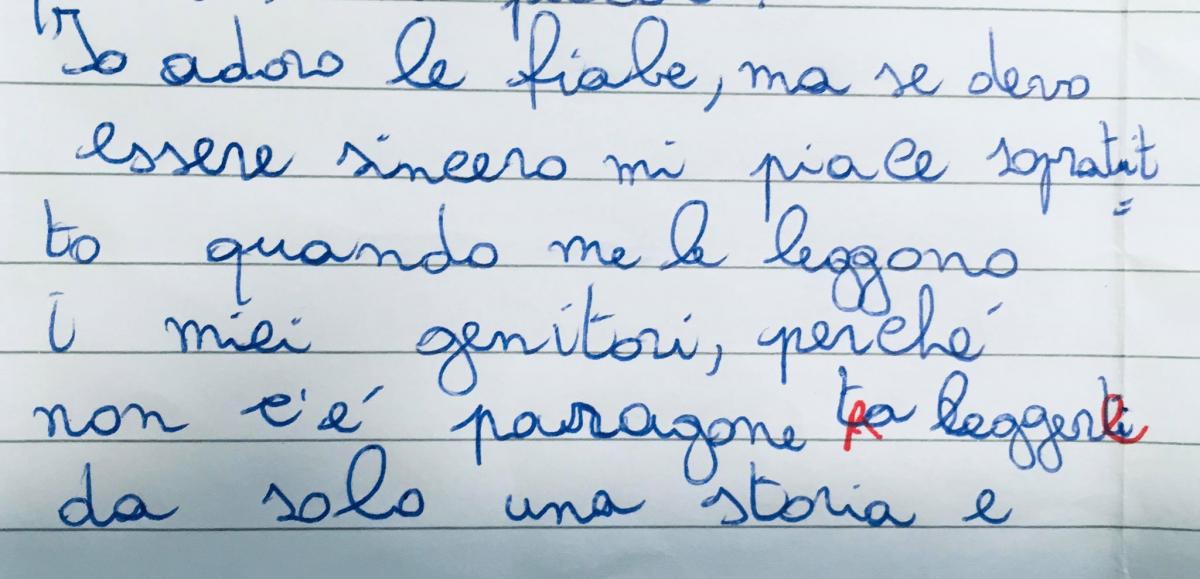 "Io adoro le fiabe, ma se devo
essere sincero mi piace sopratut
to quando me le leggono
i miei genitori, perché
non c'é paragone fra leggere
da solo una storia e